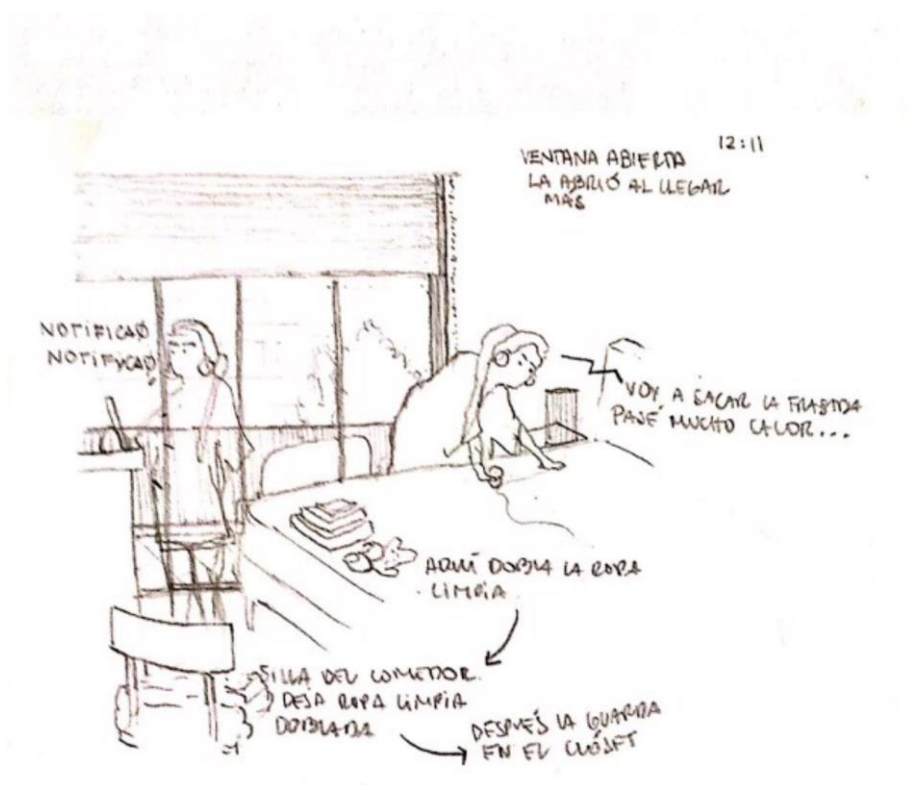 12:11
VENTANA ABIERTA
LA ABRIÓ AL LLEGAR
MÁS
NOTIFICAO
NOTIFICAO
VOY A SACAR LA FRAZADA
PASÉ MUCHO CALOR...
AQUÍ DOBLA LA ROPA
LIMPIA
SILLA DEL COMEDOR
DEJA ROPA LIMPIA
DOBLADA
DESPUÉS LA GUARDA
EN EL CLÓSET